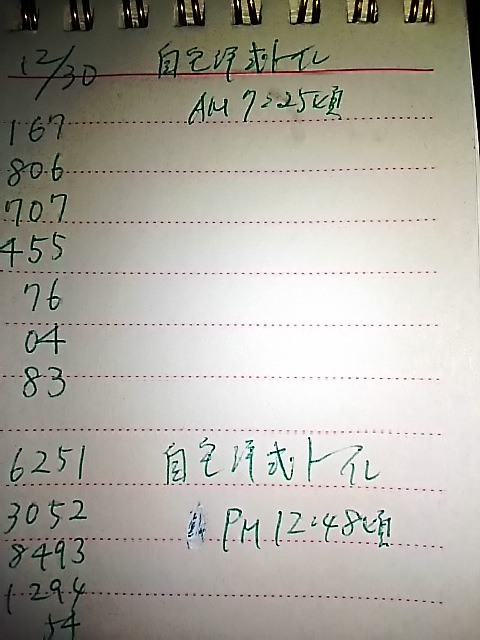 12/30 自宅洋式トイレ
AM 7:25頃
167
806
707
455
76
04
83
6251 自宅洋式トイレ
3052
PM 12:48頃
8493
1294
54